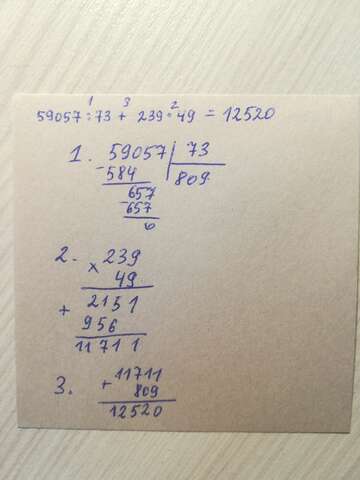 1 3 2
59057:73 + 239·49 = 12520
1. 59057 73
-584 809
-657
657
0
2. × 239
49
+ 2151
956
11711
3. + 11711
809
12520